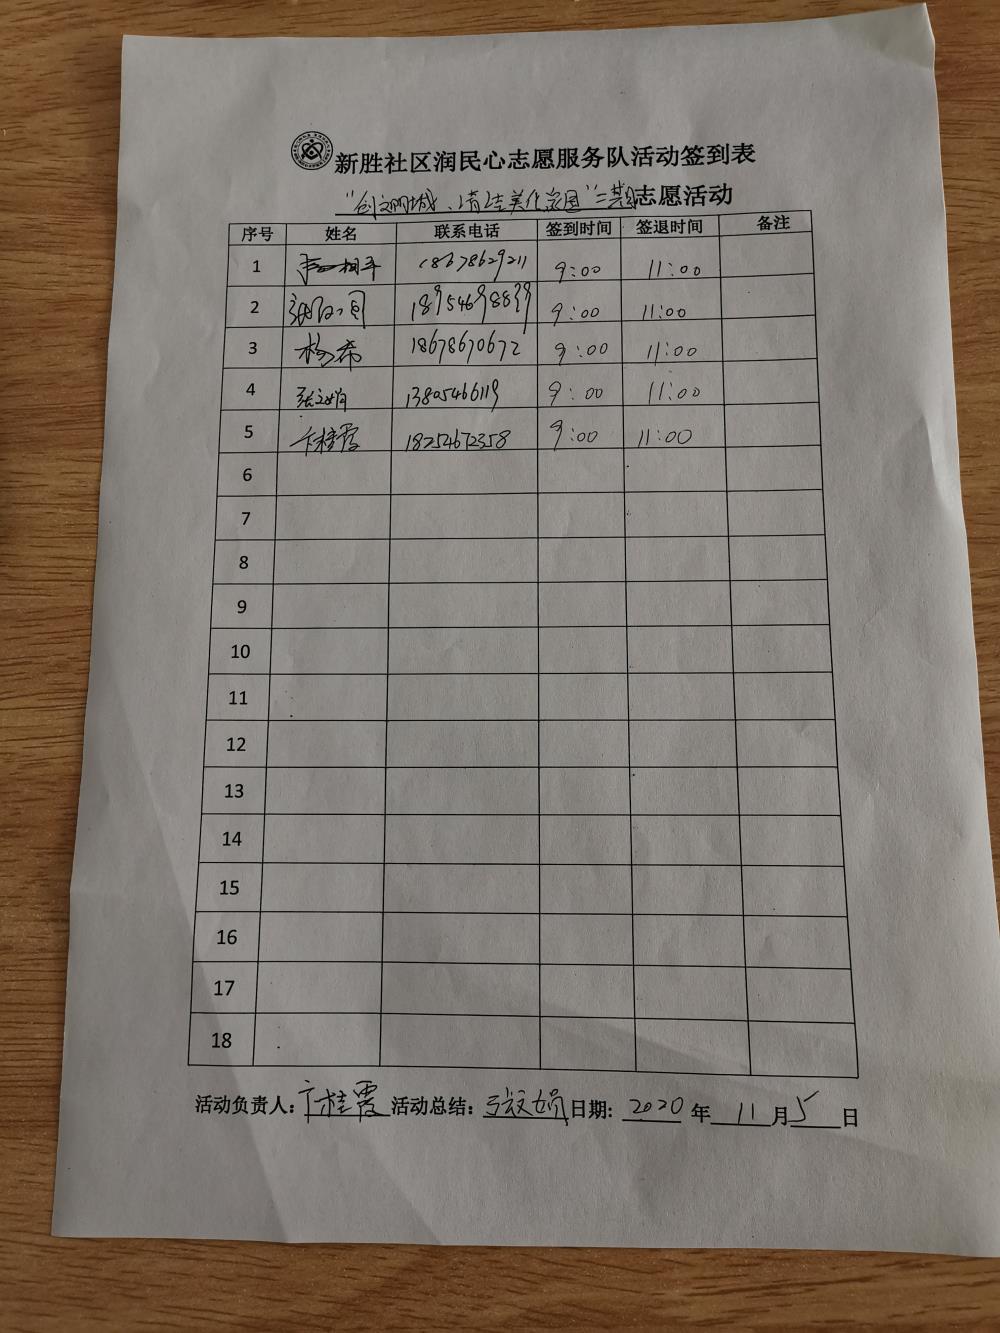 新胜社区润民心志愿服务队活动签到表
"创文明城、清洁美化家园"二期志愿活动
序号 姓名 联系电话 签到时间 签退时间 备注
1 18678629211 9:00 11:00
2 18954698839 9:00 11:00
3 杨希 18678670672 9:00 11:00
4 张文娟 13805466119 9:00 11:00
5 卞桂霞 18254672358 9:00 11:00
6
7
8
9
10
11
12
13
14
15
16
17
18
活动负责人:卞桂霞 活动总结:张文娟 日期: 2020 年 11 月 5 日